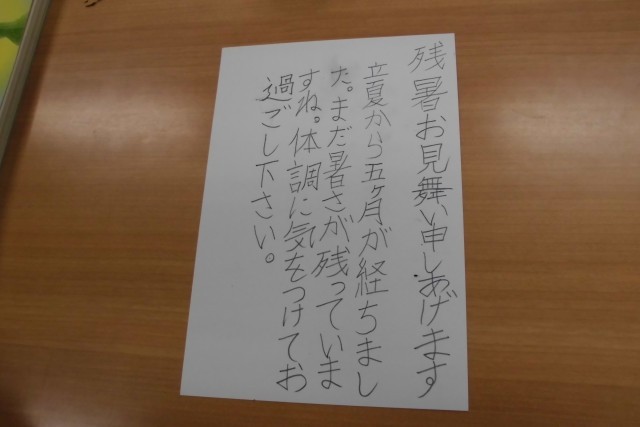 残暑お見舞い申しあげます
立夏から五ヶ月が経ちまし
た。まだ暑さが残っていま
すね。体調に気をつけてお
過ごし下さい。